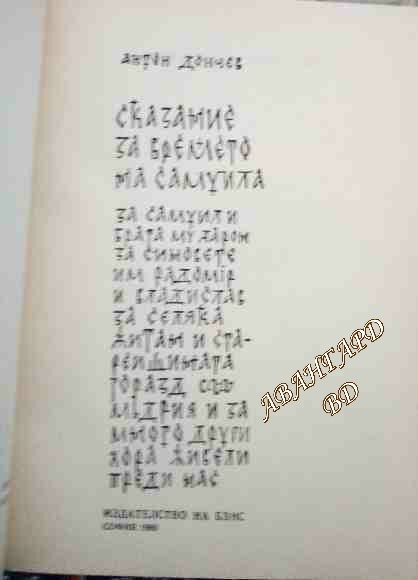 АНТОН ДОНЧЕВ
СКАЗАНИЕ
ЗА ВРЕМЕТО
НА САМУИЛА
ЗА САМУИЛ И
БРАТА МУ АРОН
ЗА СИНОВЕТЕ
ИМ РАДОМІР
И ВЛАДИСЛАВ
ЗА СЕЛЯКА
ЖИТАН И СТА-
РЕЙШИНАТА
ГОРАЗД СЪѢ
МѪДРИЯ И ЗА
МНОГО ДРУГИ
ХОРА ЖИВЕЛИ
ПРЕДИ НАС
АВАНГАРД
BD
ИЗДАТЕЛСТВО НА БЗНС